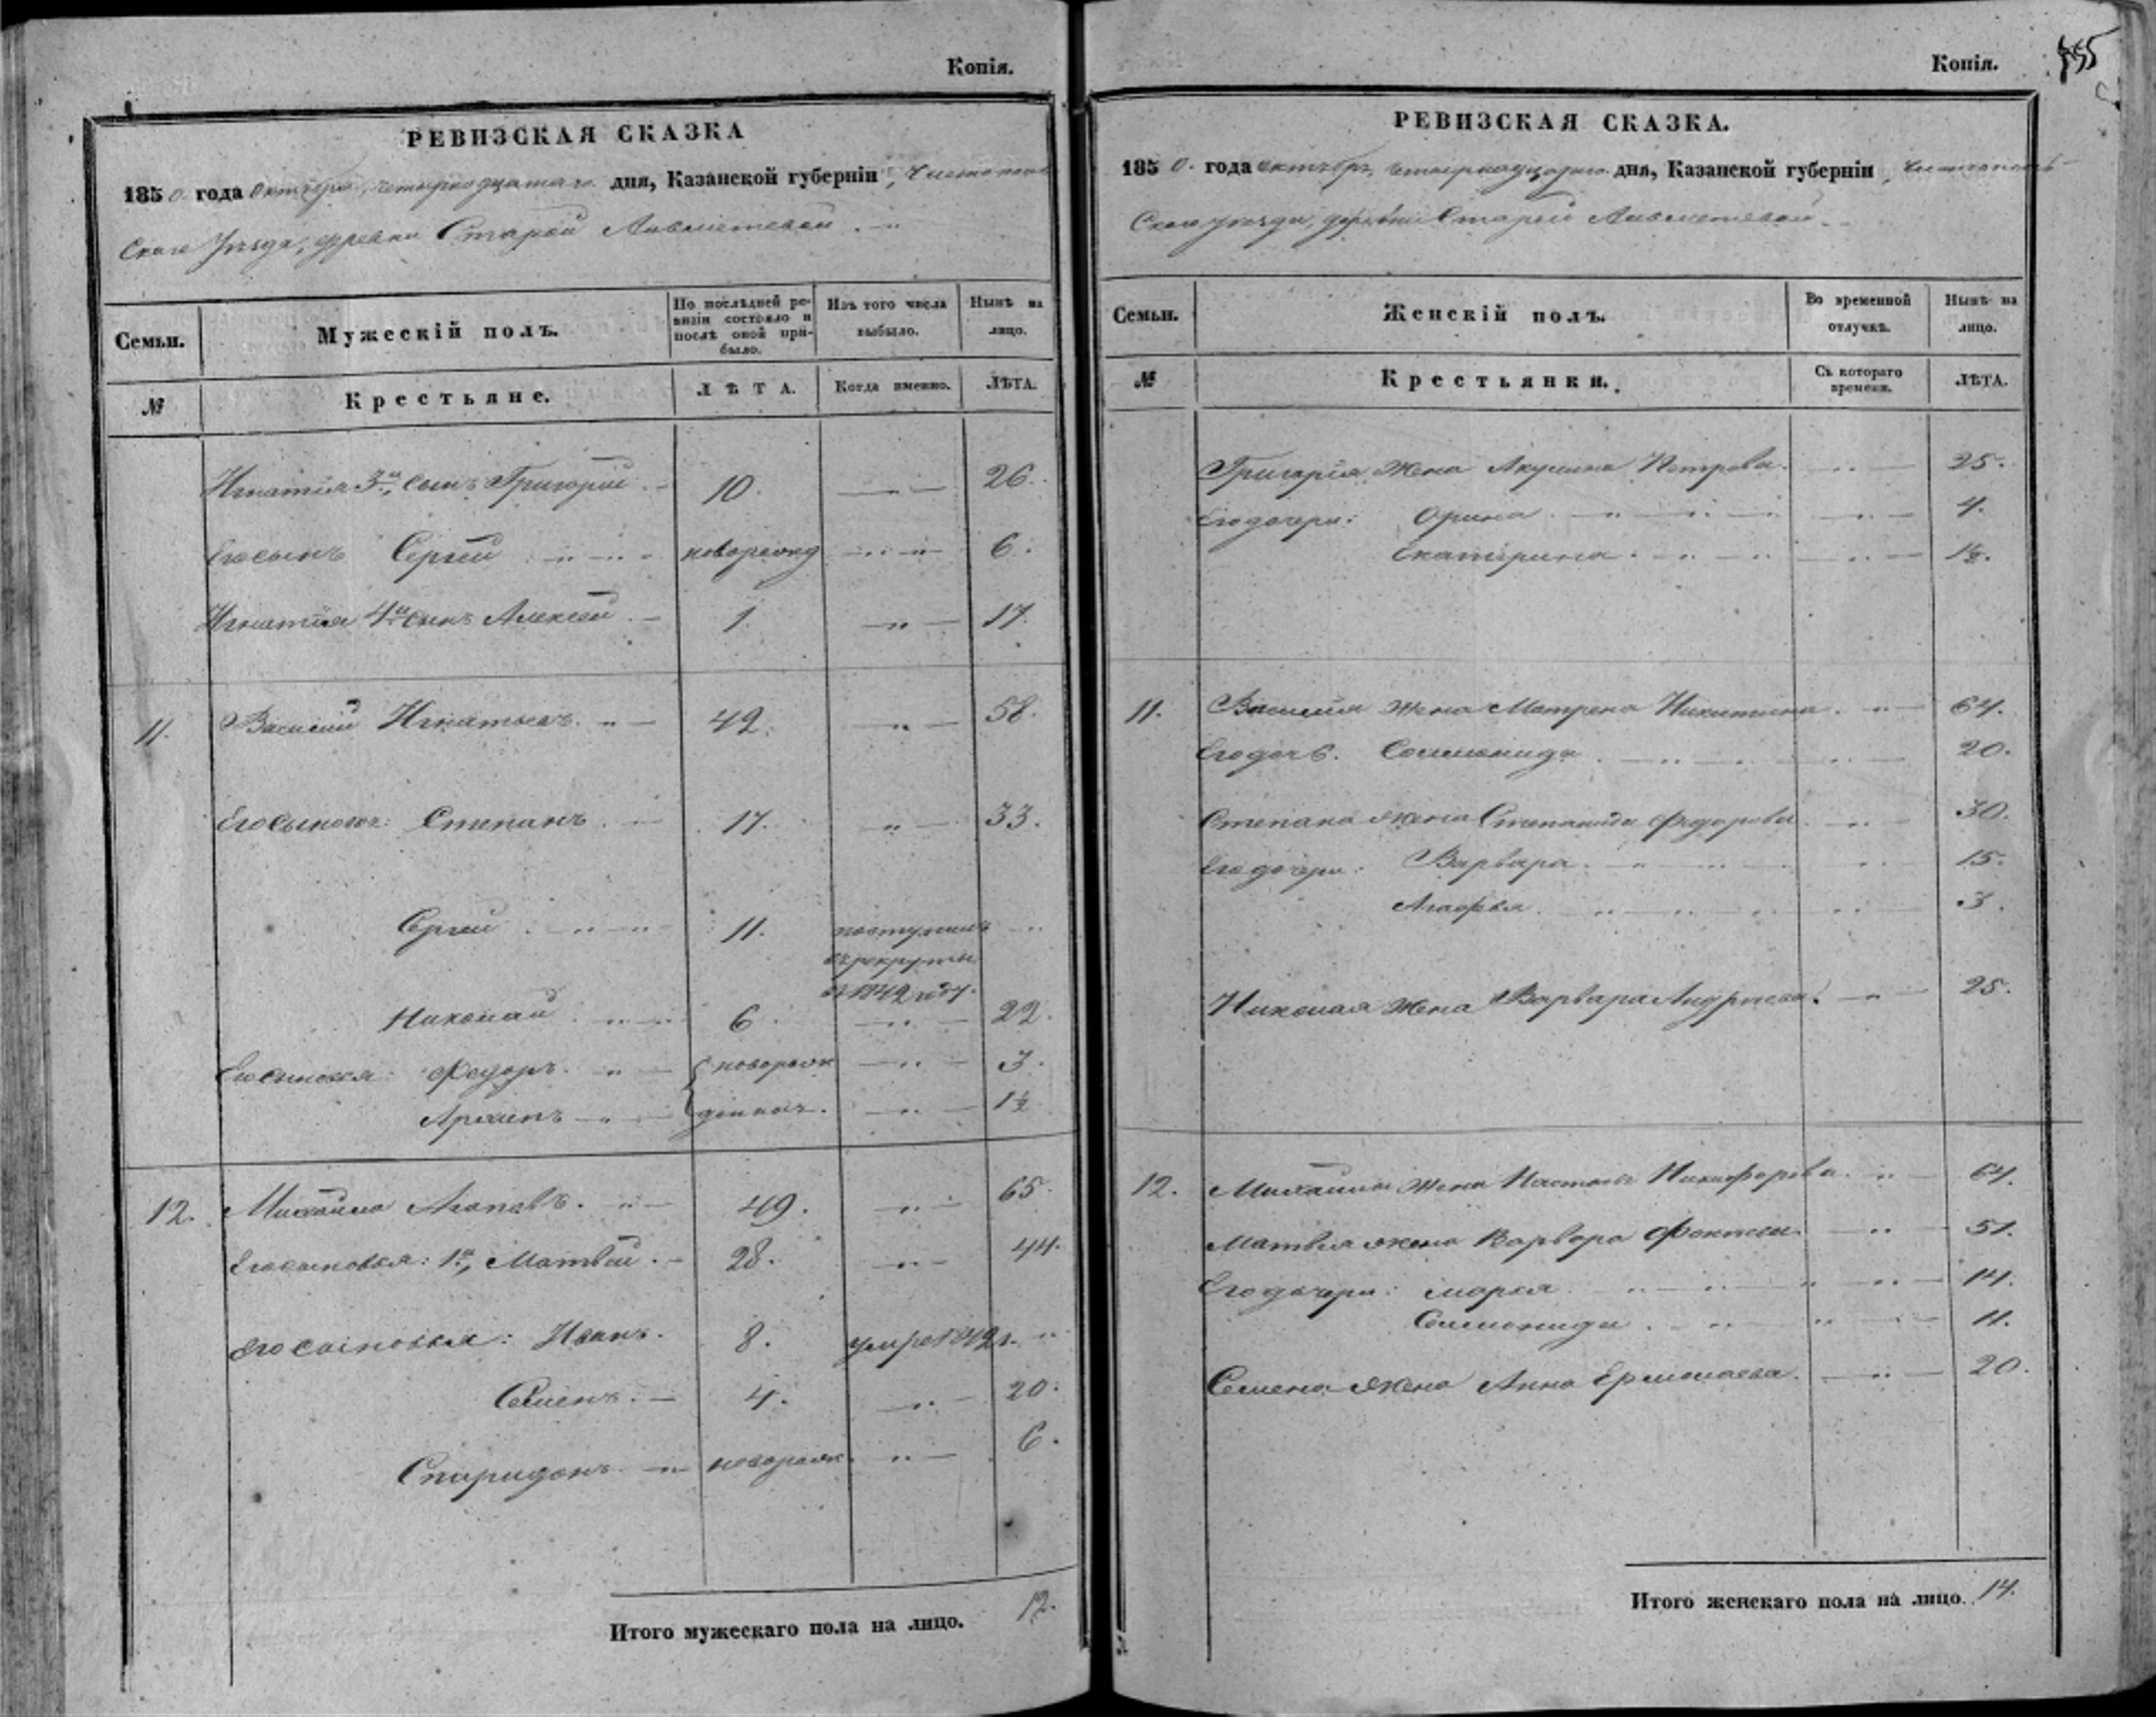 Копія.
РЕВИЗСКАЯ СКАЗКА
1850 года Октября, четырнадцатаго дня, Казанской губерніи, Чистополь
скаго Уѣзда, деревни Старой
Семьи. Мужескій полъ. По послѣдней ре-визіи состояло и послѣ оной при-было. Изъ того числа выбыло. Нынѣ на лицо.
№ Крестьяне. ЛѢТА. Когда именно. ЛѢТА.
Игнатія 3й, сынъ Григорій. 10. 26.
Его сынъ Сергѣй новорожд 6.
Игнатія 4й сынъ Алексѣй 1. 17.
11. Василий Игнатьевъ. 42. 58.
Его сыновья: Степанъ. 17. 33.
Сергѣй 11. поступилъ
въ рекруты
въ 1842 году.
Николай 6. 22.
Его сыновья: Федоръ. новорож 3.
Архипъ денные. 1½
12. Михайло Агаповъ. 49. 65.
Его сыновья: 1й, Матвѣй. 28. 44.
Его сыновья: Иванъ. 8. умре 1842г.
Семенъ. 4. 20.
Спиридонъ. новорож. 6.
Итого мужескаго пола на лицо. 12.
Копія.
РЕВИЗСКАЯ СКАЗКА.
1850. года Октября, четырнадцатаго дня, Казанской губерніи, Чистополь-
скаго уѣзда, деревни Старой
Семьи. Женскій полъ. Во временной отлучкѣ. Нынѣ на лицо.
№ Крестьянки. Съ котораго времени. ЛѢТА.
Григорія жена Акулина Петрова. 25.
Его дочери: Орина. 4.
Екатерина. 1½.
11. Василія жена Матрена Никитина. 64.
Его дочь. Соломонида 20.
Степана жена Степанида Федорова 30.
Его дочери: Варвара. 15.
Агафья. 3.
Николая жена Варвара Андреева. 25.
12. Михайлы жена Настасья Никифорова. 64.
Матвѣя жена Варвара 51.
Его дочери: Марья 14.
Соломонида 11.
Семена жена Анна Ермолаева. 20.
Итого женскаго пола на лицо. 14.